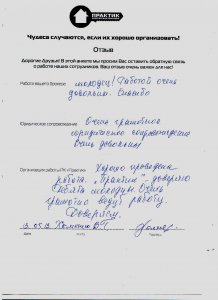 ПРАКТИК
Чудеса случаются, если их хорошо организовать!
Отзыв
Дорогие друзья! В этой анкете мы просим Вас оставить обратную связь
о работе наших сотрудников. Ваш отзыв очень важен для нас!
Работа вашего брокера молодец! Работой очень
довольна. Спасибо
Юридическое сопровождение Очень грамотное
юридическое сопровождение
Очень довольны
Организация работы ПК «Практик» Хорошо проведена
работа. "Практик" - доверяю
Ребята молодцы. Очень
грамотно ведут работу
Доверяю.
Дата